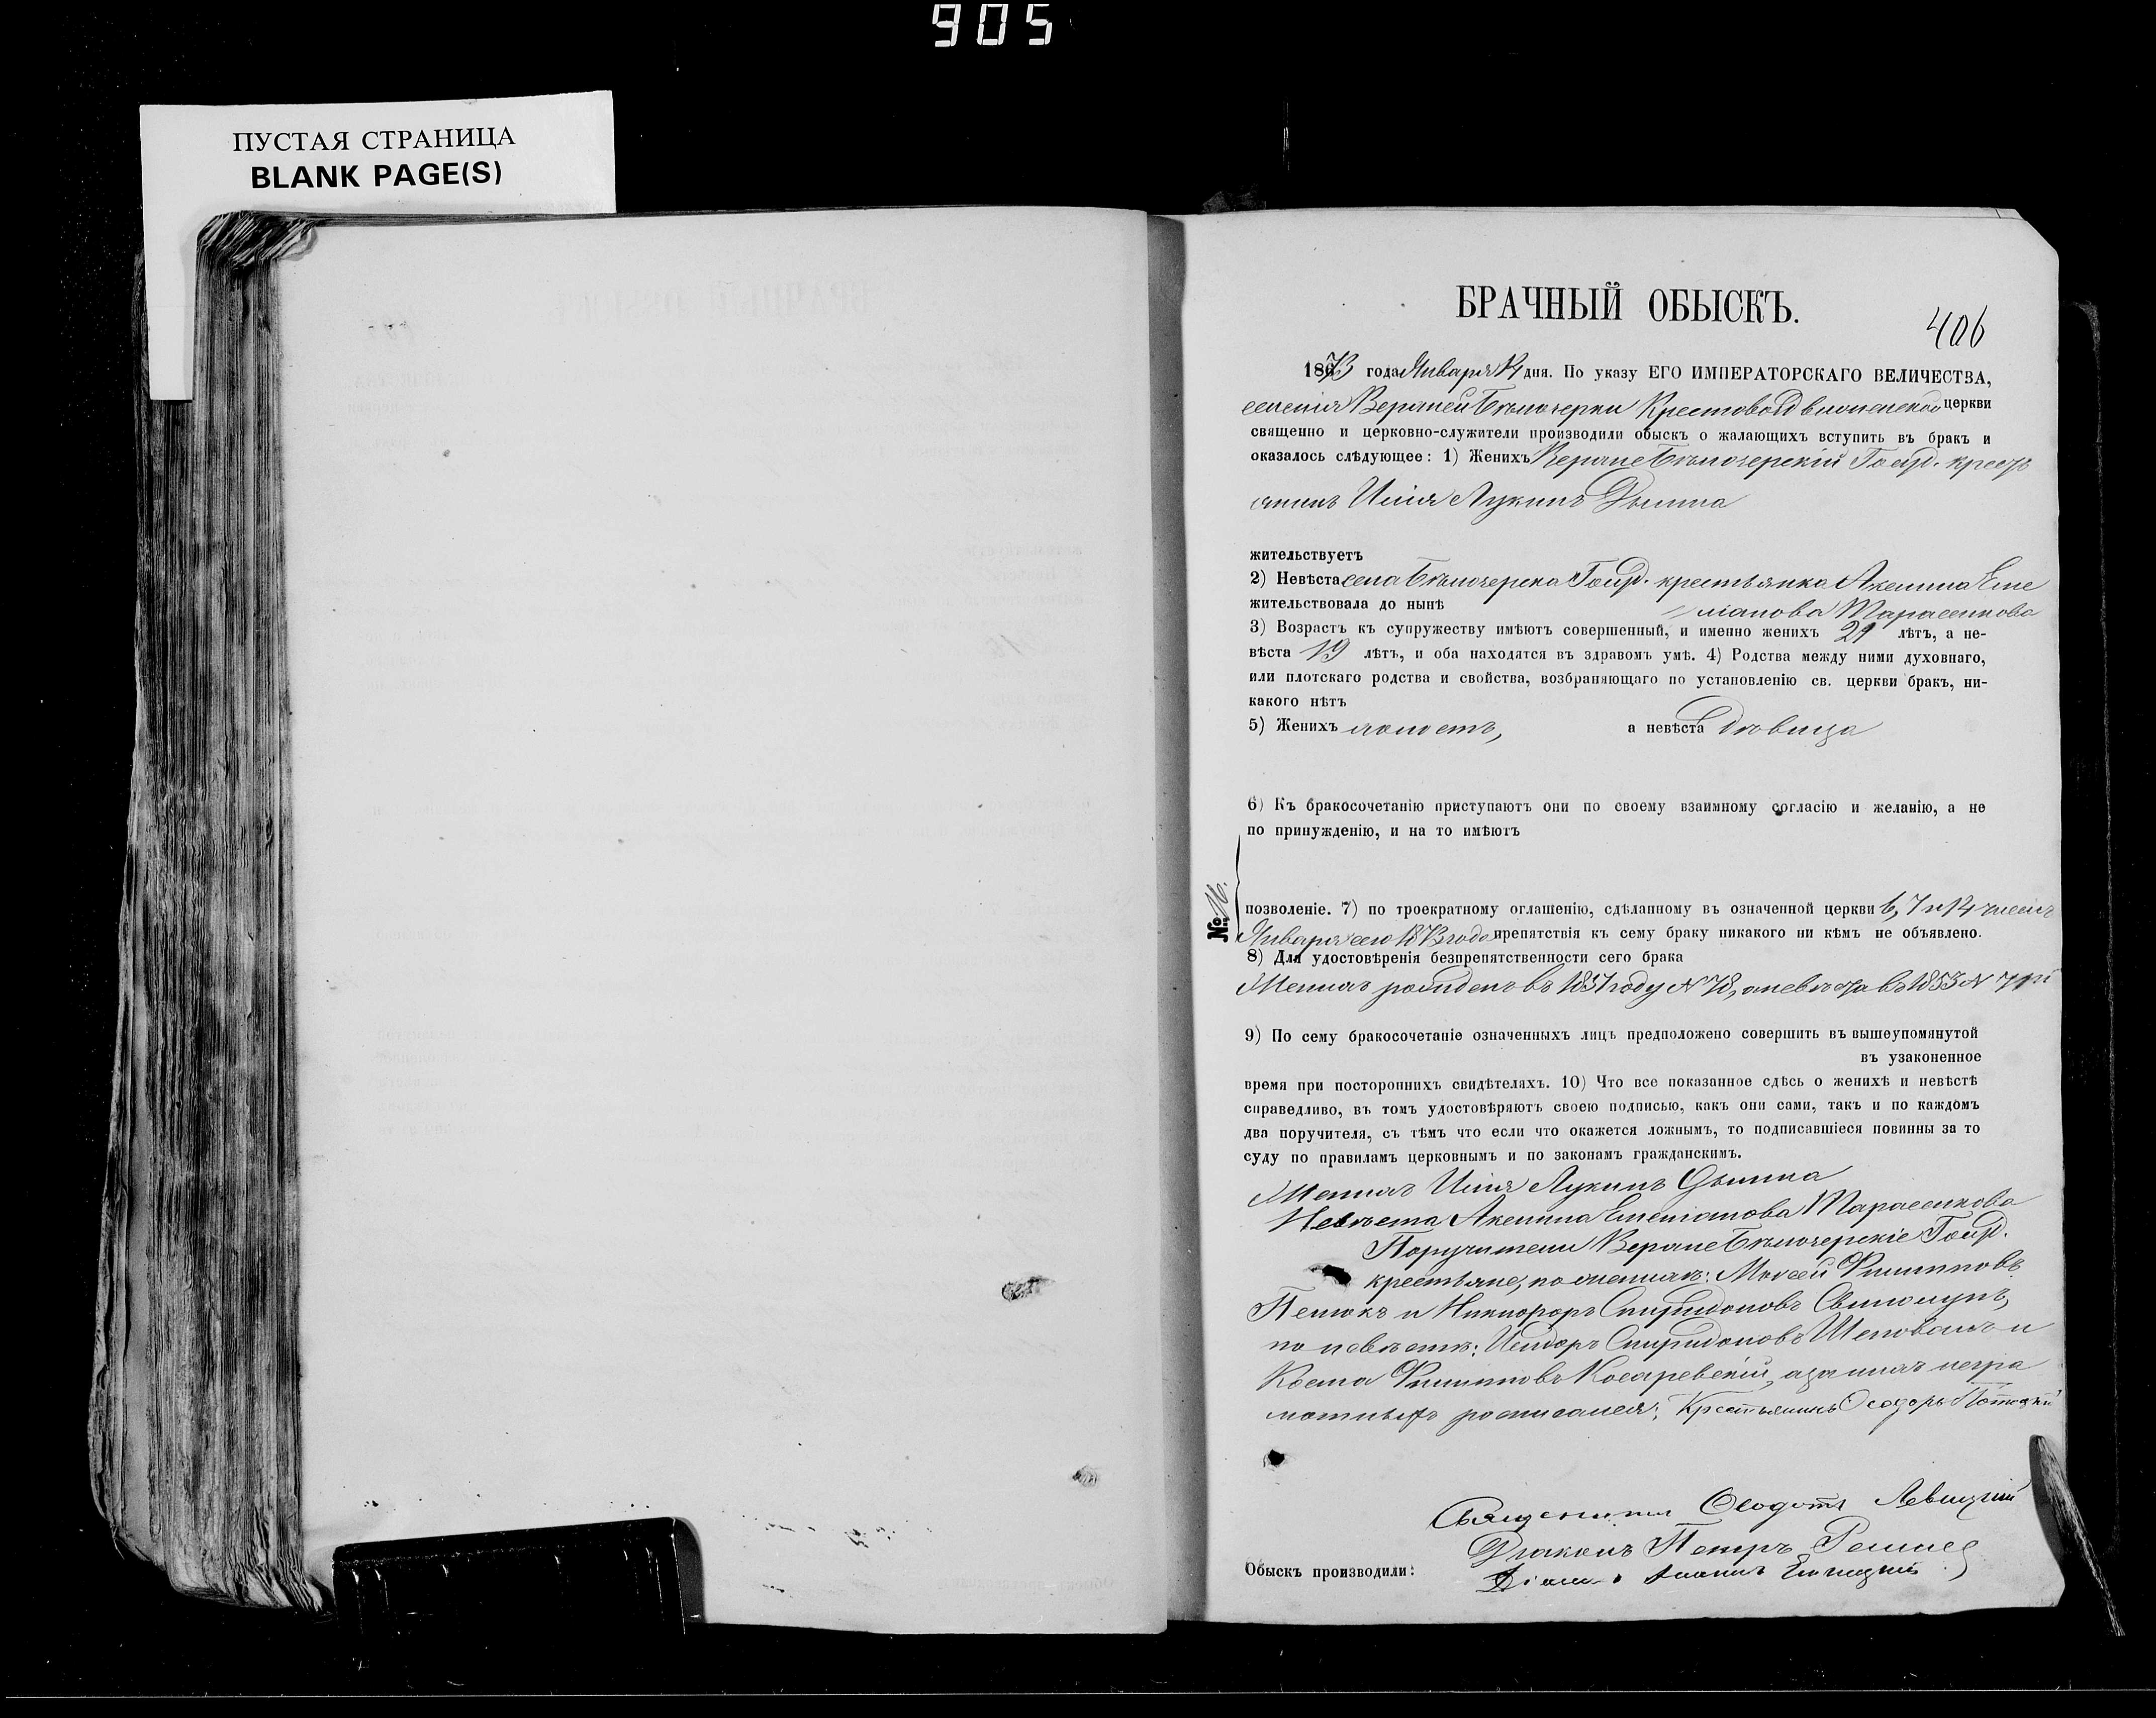 905
ПУСТАЯ СТРАНИЦА
BLANK PAGE(S)
БРАЧНЫЙ ОБЫСКЪ.
406
1873 года Января 14 дня. По указу ЕГО ИМПЕРАТОРСКАГО ВЕЛИЧЕСТВА,
селенія Верхней Бѣлозерки Крестовоздвиженской церкви
священно и церковно-служители производили обыскъ о жалающихъ вступить въ бракъ и
оказалось слѣдующее: 1) Женихъ Верхне Бѣлозерскій Госуд. кресть
янинъ Илія Лукинъ
жительствуетъ
2) Невѣста села Бѣлозерска Госуд. крестьянка Аксинія Еме
жительствовала до нынѣ
ліанова Тарасенкова
3) Возрастъ къ супружеству имѣютъ совершенный, и именно женихъ 21 лѣтъ, а не-
вѣста 19 лѣтъ, и оба находятся въ здравомъ умѣ. 4) Родства между ними духовнаго,
или плотскаго родства и свойства, возбраняющаго по установленію св. церкви бракъ, ни-
какого нѣтъ
5) Женихъ холостъ, а невѣста дѣвица
6) Къ бракосочетанію приступаютъ они по своему взаимному согласію и желанію, а не
по принужденію, и на то имѣютъ
№ 16.
позволеніе. 7) по троекратному оглашенію, сдѣланному въ означенной церкви 6, 7 и 14 числъ
Января сего 1873 года препятствія къ сему браку никакого ни кѣмъ не объявлено.
8) Для удостовѣренія безпрепятственности сего брака
Женихъ рожденъ въ 1851 году № 78, а невѣста въ 1853 №
9) По сему бракосочетаніе означенныхъ лицъ предположено совершить въ вышеупомянутой
въ узаконенное
время при постороннихъ свидѣтеляхъ. 10) Что все показанное сдѣсь о женихѣ и невѣстѣ
справедливо, въ томъ удостовѣряютъ своею подписью, какъ они сами, такъ и по каждомъ
два поручителя, съ тѣмъ что если что окажется ложнымъ, то подписавшіеся повинны за то
суду по правиламъ церковнымъ и по законамъ гражданскимъ.
Женихъ Илія Лукинъ
Невѣста Аксинія Емеліанова Тарасенкова
Поручители Верхне Бѣлозерскіе Госуд.
крестьяне, по женихѣ: Моисей Филипповъ
и Никифоръ Спиридоновъ
по невѣстѣ: Исидоръ Спиридоновъ Шаповалъ и
Косма Филипповъ Косаревскій, а за нихъ негра
мотныхъ росписался: Крестьянинъ Ѳеодоръ
Священникъ Ѳеодотъ Левицкій
Діаконъ Петръ
Обыскъ производили: